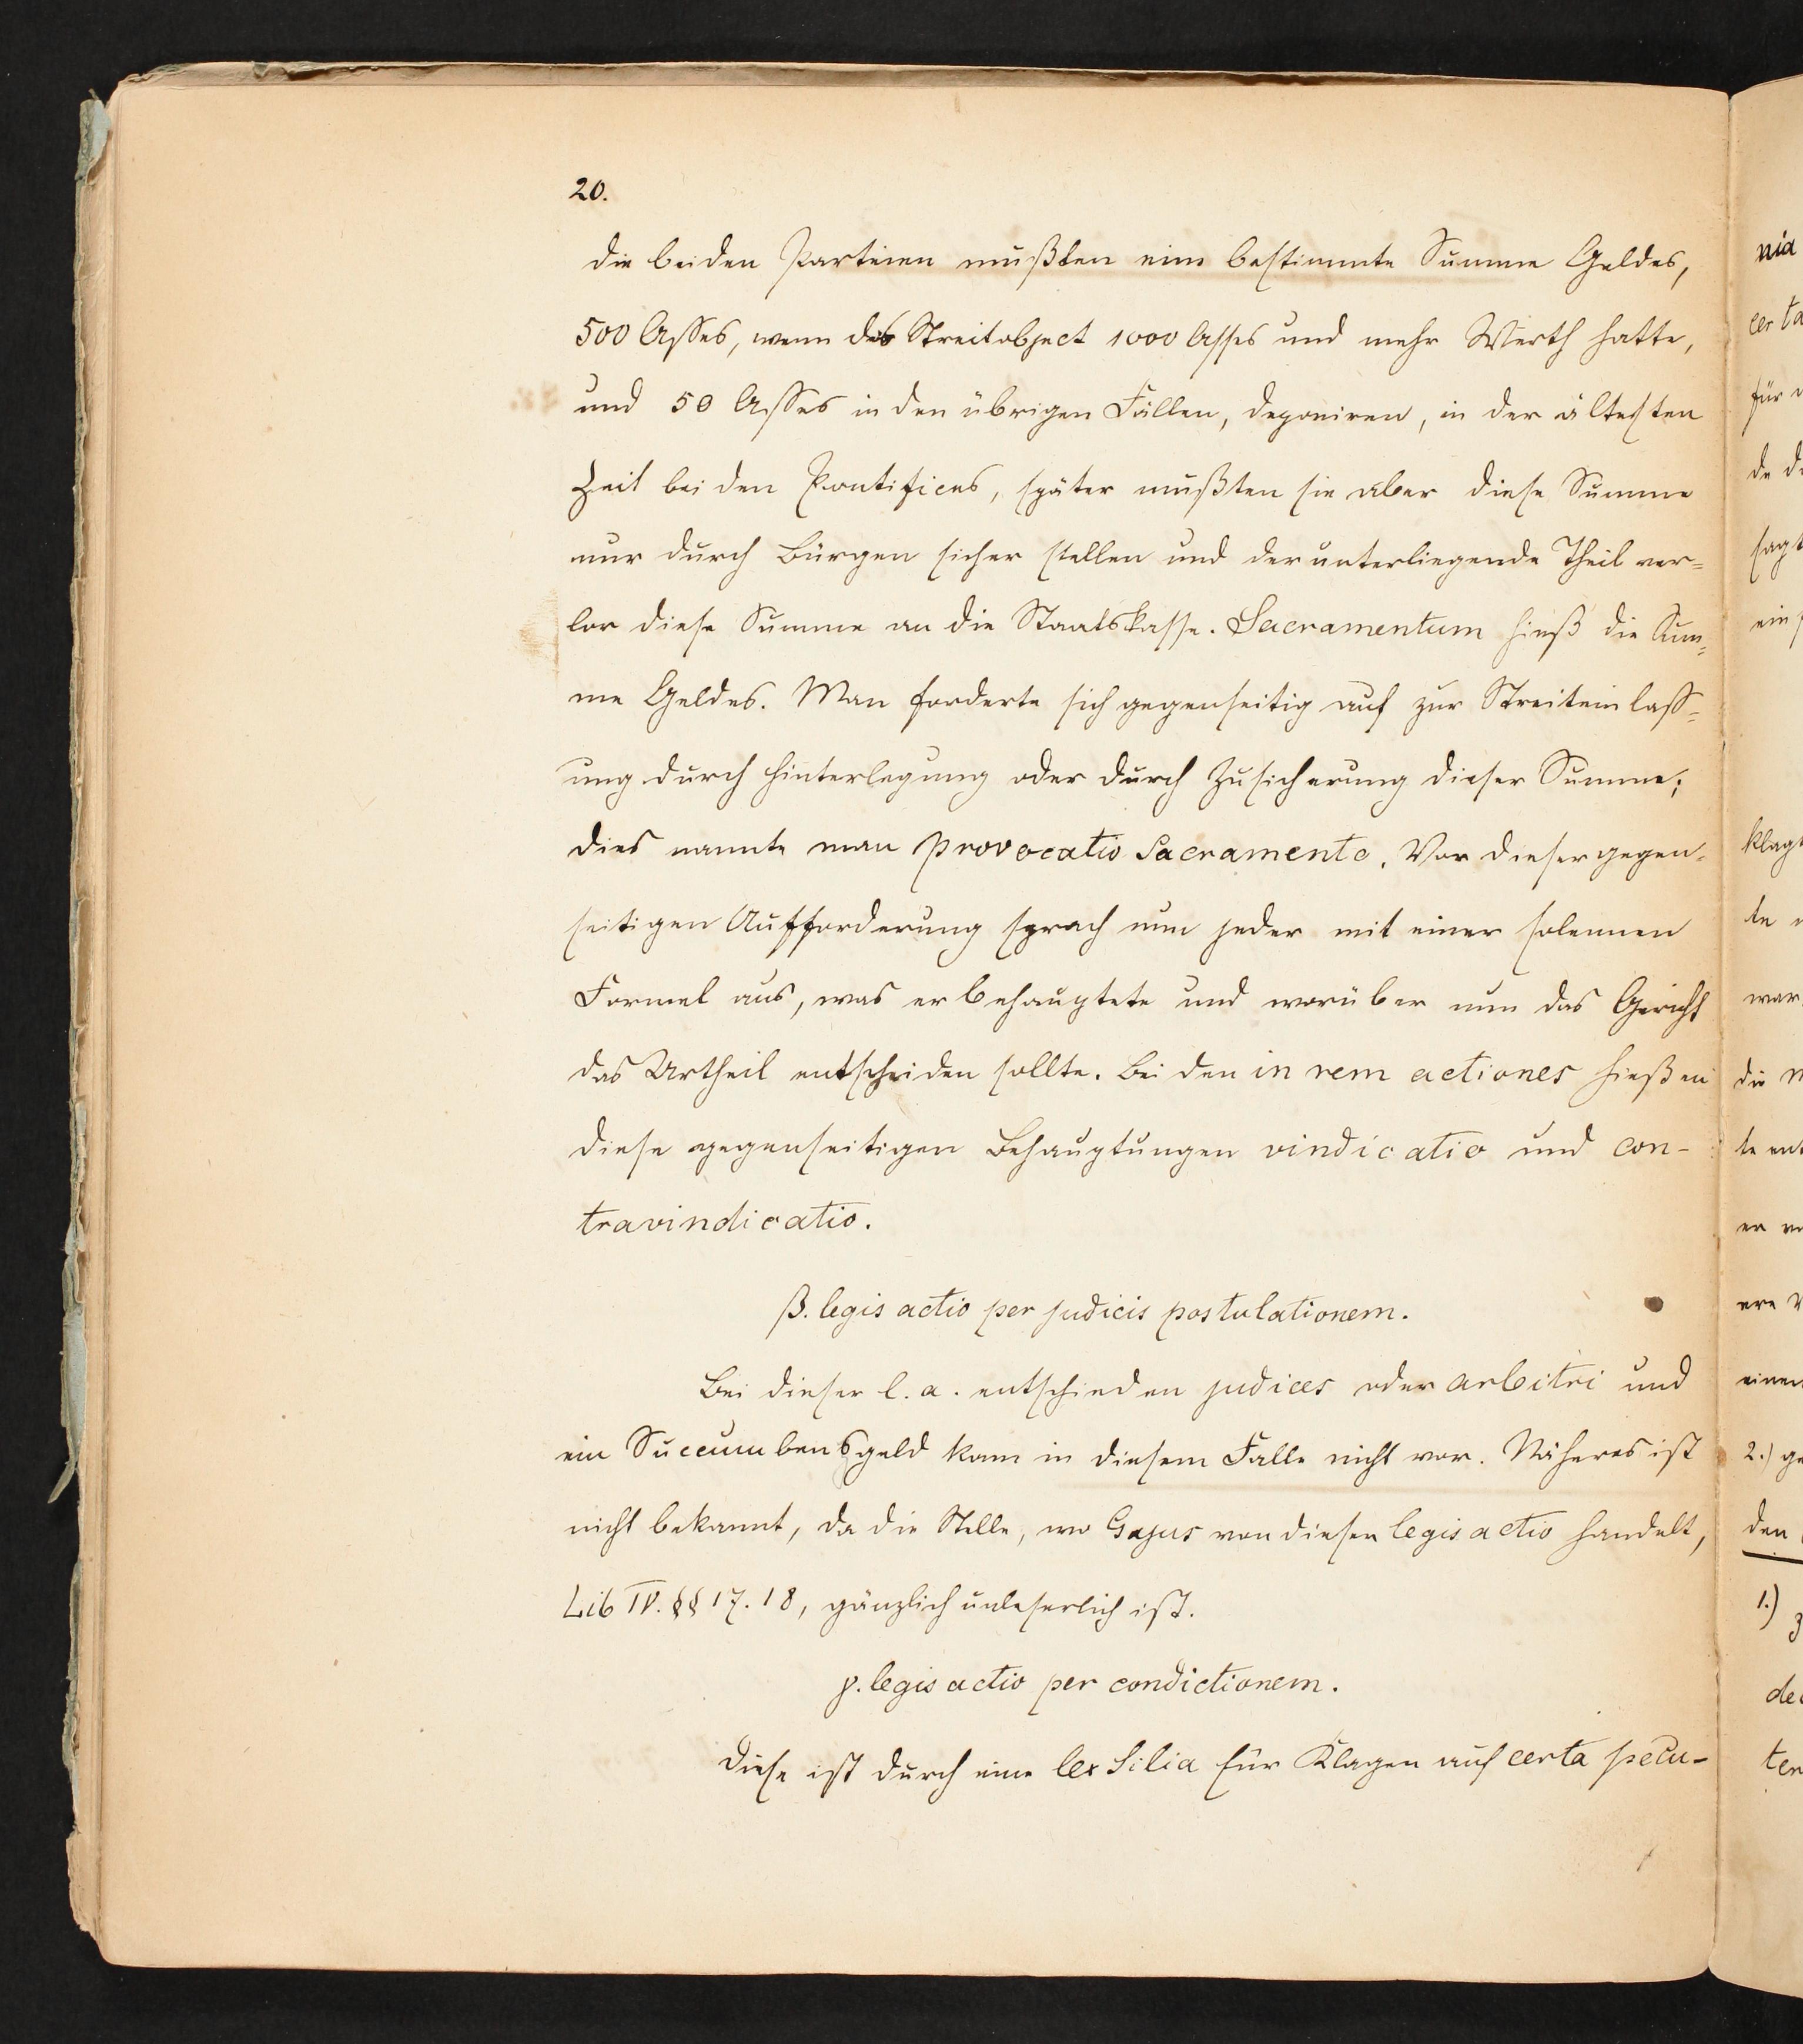 20.
die beiden Parteien mußten eine bestimmte Summe Geldes,
500 Asses, wenn das Streitobject 1000 Asses und mehr Werth hatte,
und 50 Asses in den übrigen Fällen, deponiren, in der ältesten
Zeit bei den Pontifices, später mußten sie aber diese Summe
nur durch Bürgen sicher stellen und der unterliegende Theil ver=
lor diese Summe an die Staatskasse. Sacramentum hieß die Sum=
me Geldes. Man forderte sich gegenseitig auf zur Streiteinlass=
ung durch Hinterlegung oder durch Zusicherung dieser Summe;
dies nannte man provocatio Sacramento. Vor dieser gegen=
seitigen Aufforderung sprach nun jeder mit einer solennen
Formel aus, was er behauptete und worüber nun das Gericht
das Urtheil entscheiden sollte. Bei den in rem actiones hießen
diese gegenseitigen Behauptungen vindicatio und con-
travindicatio.
β. legis actio per judicis postulationem.
Bei dieser l. a. entschieden judices oder arbitri und
ein Succumbensgeld kam in diesem Falle nicht vor. Näheres ist
nicht bekannt, da die Stelle, wo Gajus von dieser legis actio handelt,
Lib IV. §§ 17. 18, gänzlich unleserlich ist.
γ. legis actio per condictionem.
Diese ist durch eine lex Silia für Klagen auf certa pecu-
nia
certa
für
de
sagt
ein
klagt
te
war
die
te ent
er
ere
einen
2.) ge
den
1.)
de
ten